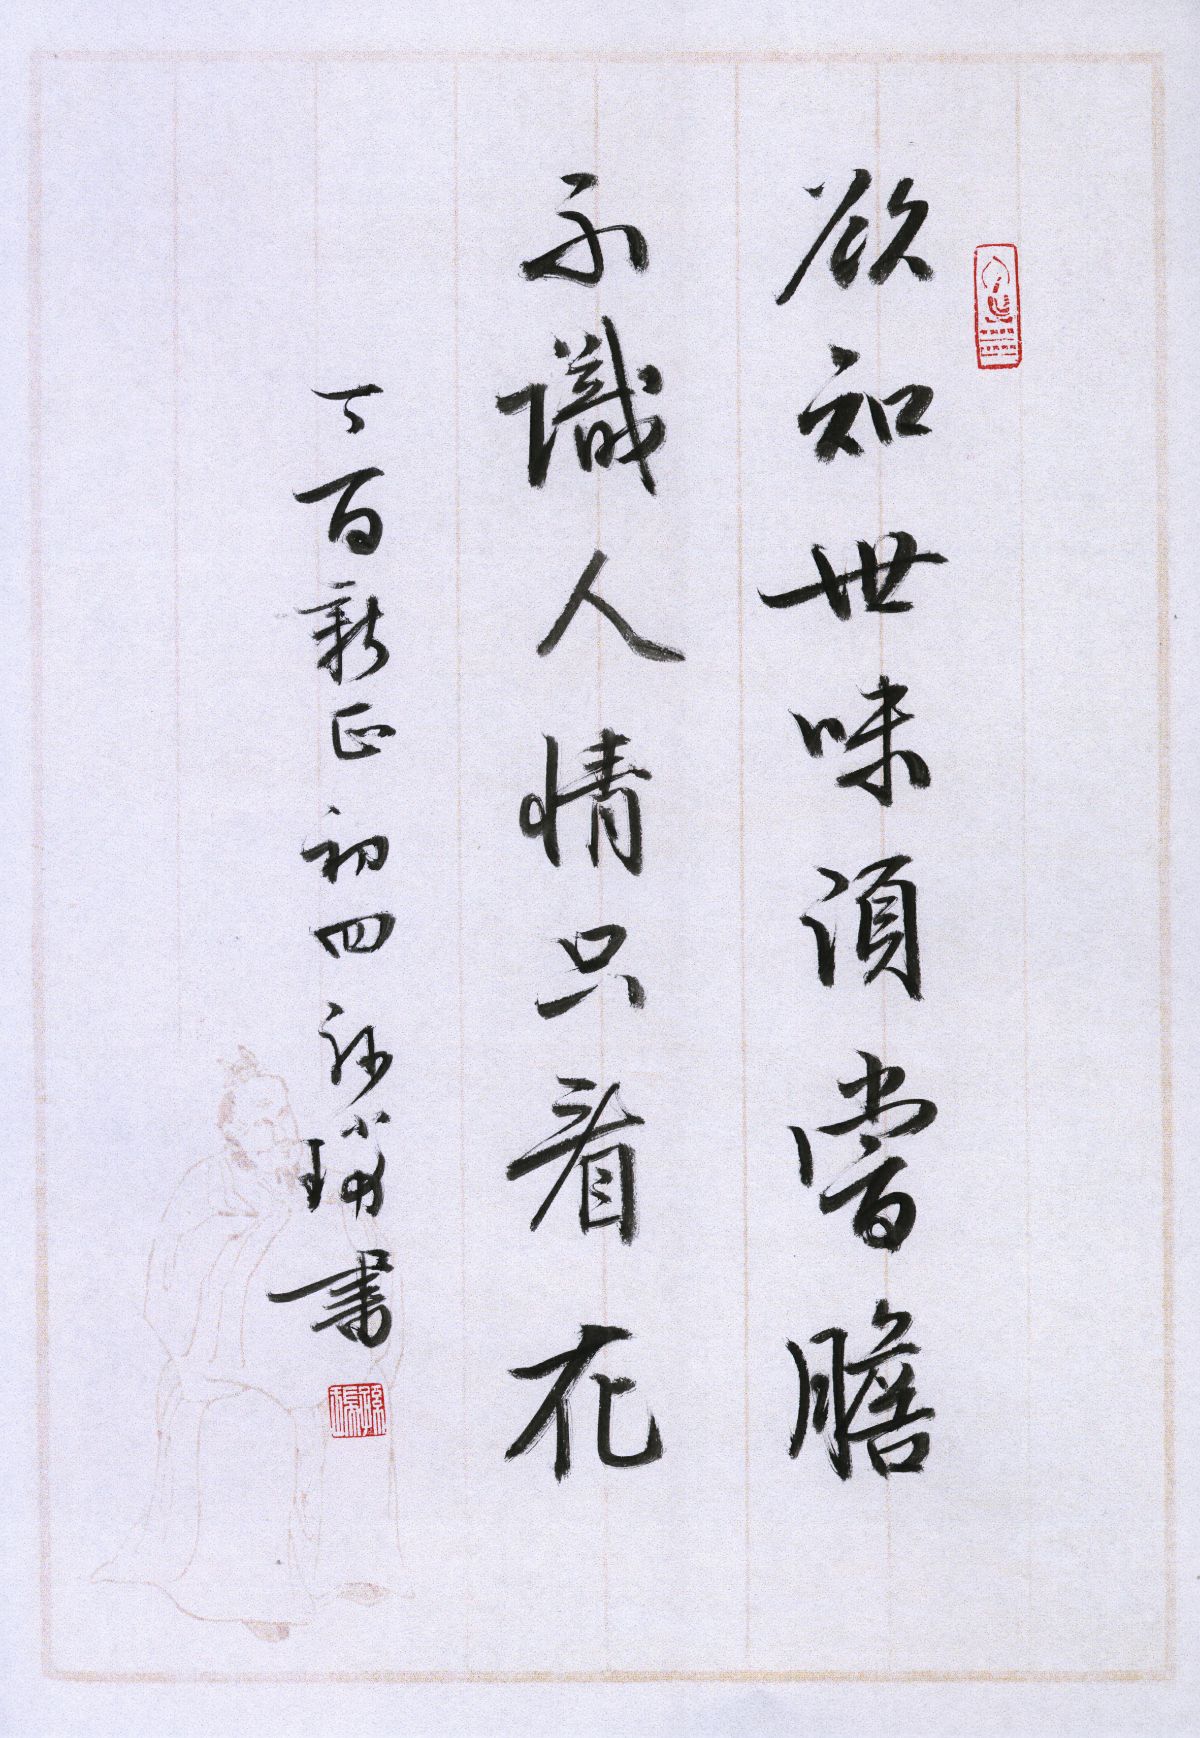 欲知世味須嘗膽
不識人情只看花
丁酉新正初四孫書